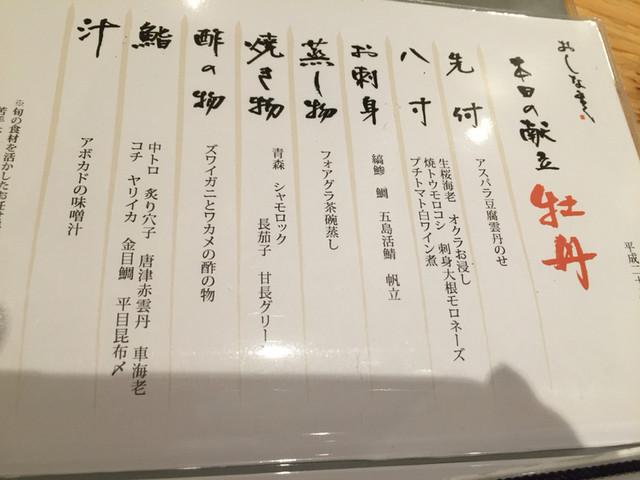 平成二十
おしながき
本日の献立 牡丹
先付
アスパラ豆腐雲丹のせ
八寸
生桜海老 オクラお浸し
焼トウモロコシ 刺身大根モロネーズ
プチトマト白ワイン煮
お刺身
縞鯵 鯛 五島活鯖 帆立
蒸し物
フォアグラ茶碗蒸し
焼き物
青森 シャモロック
長茄子 甘長グリー
酢の物
ズワイガニとワカメの酢の物
鮨
中トロ 炙り穴子 唐津赤雲丹 車海老
コチ ヤリイカ 金目鯛 平目昆布〆
汁
アボカドの味噌汁
※旬の食材を活かしたお任せ